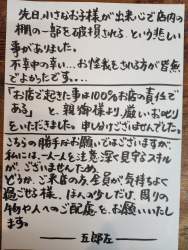 先日、小さなお子様が出来心で店内の
棚の一部を破損される、という悲しい
事がありました。
不幸中の幸い…お怪我をされる方が皆無
でよかったです…。
「お店で起きた事は100%お店の責任で
ある」と、親御様より、厳しいお叱り
をいただきました。申し訳ございませんでした。
こちらの勝手なお願いではございますが、
私には、一人一人を注意深く見守るスキル
が、ございませんため、
どうか、ご来店の方、全員が気持ちよく
過ごせる様、ほんの少しだけ、周り
の物や人へのご配慮を、お願いいたし
ます。
五郎左